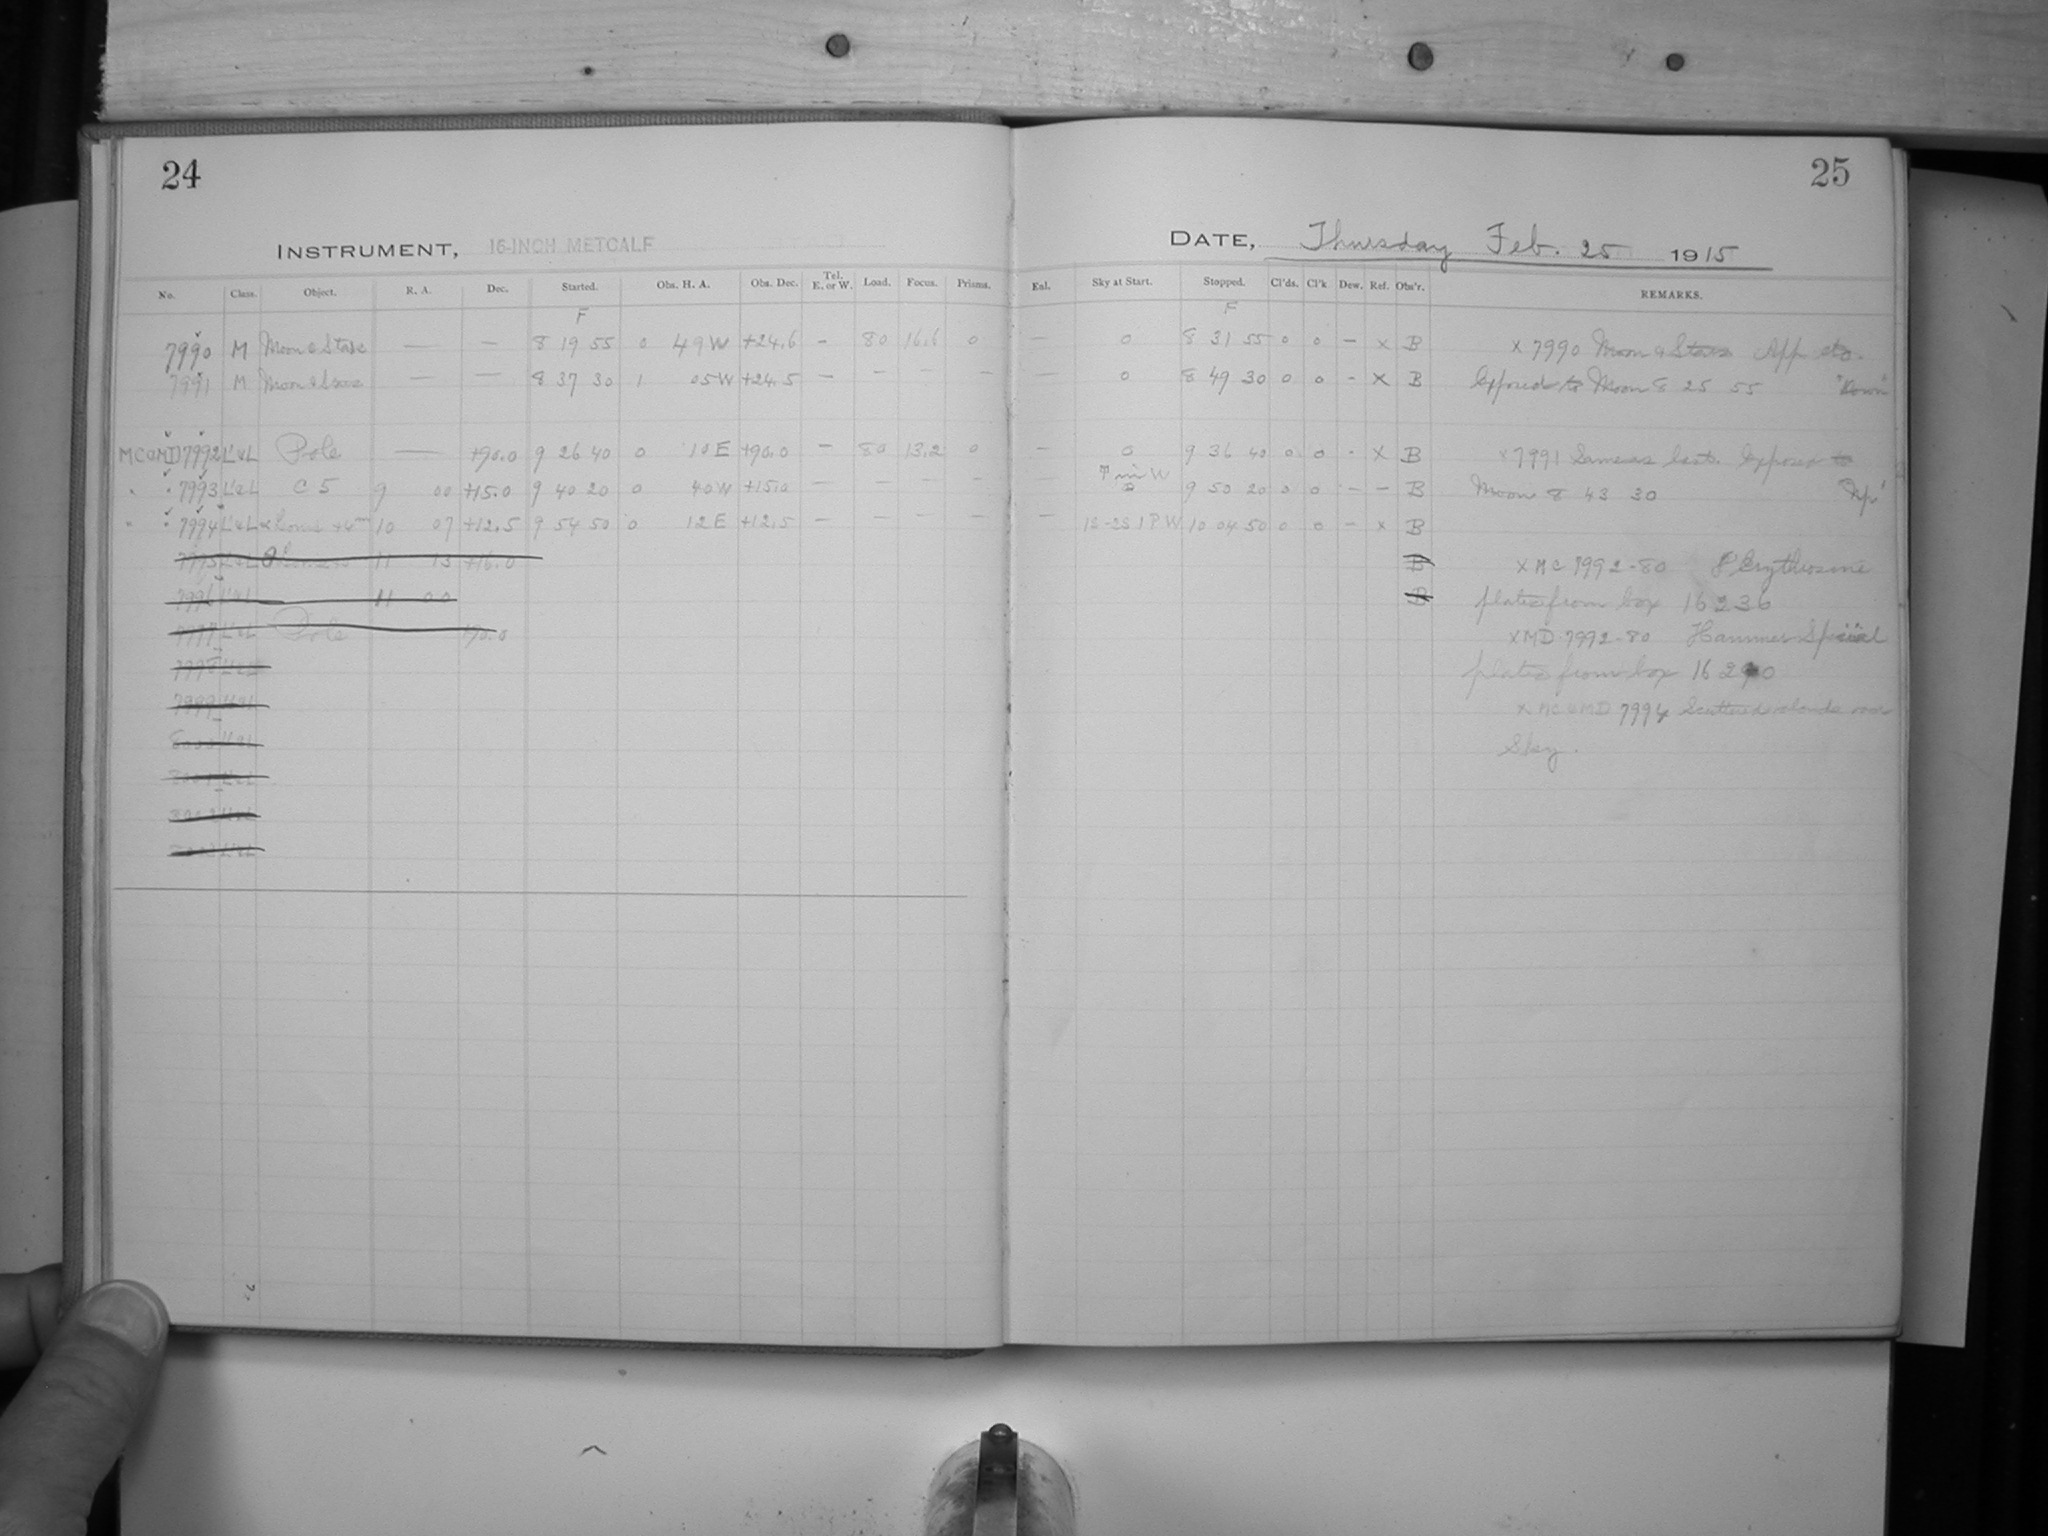 24
INSTRUMENT, 16-INCH METCALF
No. Class. Object. R. A. Dec. Started. Obs. H. A. Obs. Dec. Tel. E. or W. Load. Focus. Prisms.
F
7990 M Moon & Stars — — 8 19 55 0 49 W +24.6 – 80 16.6 0
7991 M Moon & Stars — — 8 37 30 1 05 W +24.5 – – – –
MC&MD 7992 L&L Pole — +90.0 9 26 40 0 10 E +90.0 – 80 13.2 0
" " 7993 L&L C 5 9 00 +15.0 9 40 20 0 40 W +15.0 – – – –
" " 7994 L&L 10 07 +12.5 9 54 50 0 12 E +12.5 – – – –
7995 L&L 11 13 +16.0
7996 L&L 11 00
7997 L&L Pole +90.0
7998 L&L
7999 L&L
8000 L&L
8001 L&L
8002 L&L
8003 L&L
25
DATE, Thursday Feb. 25 1915
Enl. Sky at Start. Stopped. Cl'ds. Cl'k Dew. Ref. Obs'r. REMARKS.
F
— 0 8 31 55 0 0 – x B
— 0 8 49 30 0 0 - x B
— 0 9 36 40 0 0 - x B
— W 9 50 20 0 0 – – B
— 10 04 50 0 0 – x B
B
B
x 7990 Moon & Stars App
Exposed to Moon 8 25 55 "Down"
x 7991 Same as last. Exposed to
Moon 8 43 30
x MC 7992-80 Erythrosine
plates from box 16236
x MD 7992-80 Hammer Special
plates from box 16290
x MC & MD 7994 Scattered clouds over
Sky.